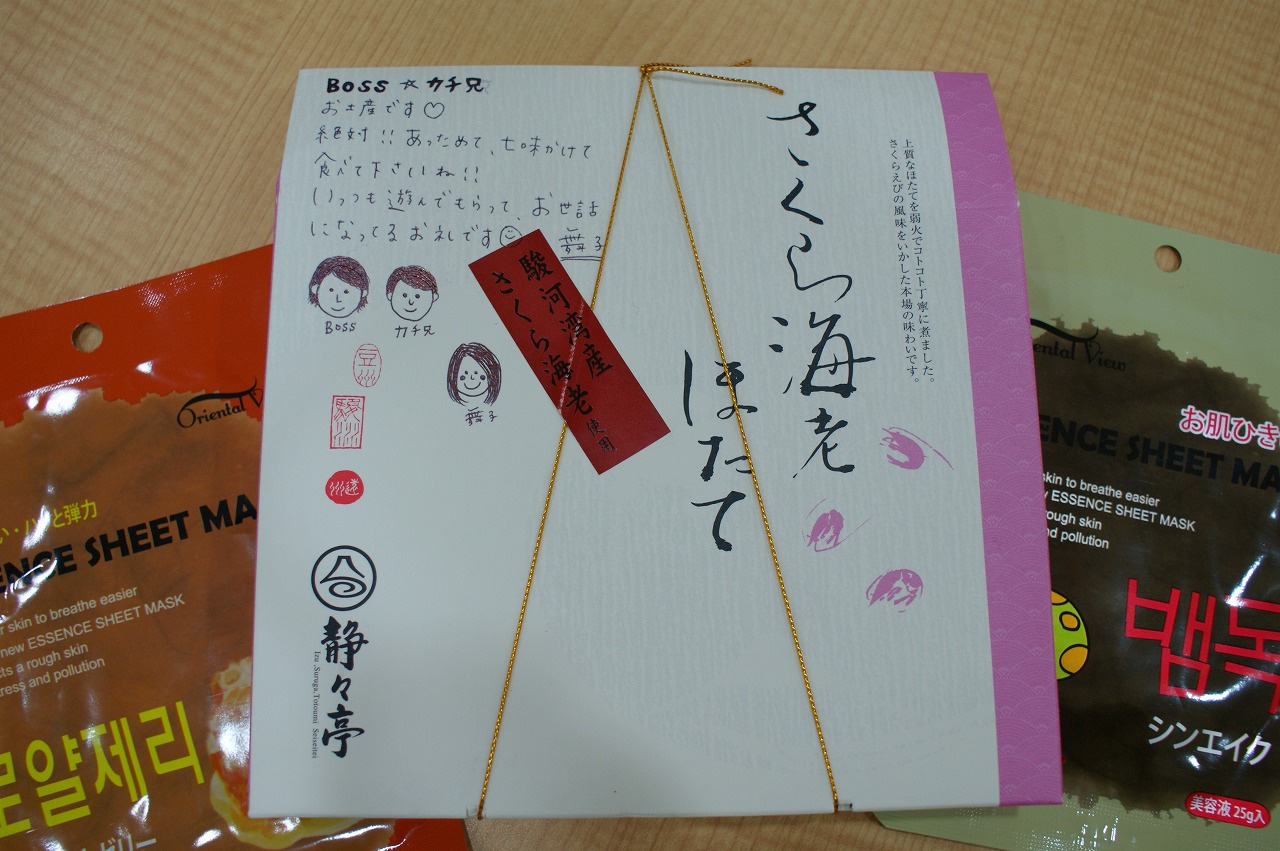 BOSS ☆ カチ兄
お土産です♡
絶対!!あっためて、七味かけて
食べて下さいね!!
いっつも遊んでもらって、お世話
になってるお礼です☺
舞子
BOSS
カチ兄
舞子
豆州
駿州
遠州
静々亭
Izu ,Suruga,Totoumi Seiseitei
駿河湾産
さくら海老使用
さくら海老
ほたて
上質なほたてを弱火でコトコト丁寧に煮ました。
さくらえびの風味をいかした本場の味わいです。
Oriental V
・ハリと弾力
ENCE SHEET MA
skin to breathe easier
new ESSENCE SHEET MASK
cts a rough skin
tress and pollution
로얄제리
ゼリー
ental View
お肌ひき
ENCE SHEET MA
skin to breathe easier
ESSENCE SHEET MASK
rough skin
nd pollution
뱀독
シンエイク
美容液 25g入